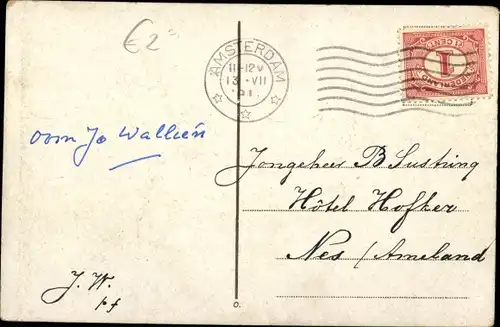 €2
AMSTERDAM
11-12V
13 VII
oom Jo Wallien
J. W.
p f
Jongeheer B Sustring
Hôtel Hofker
Nes / Ameland
1
CENT
NEDERLAND
o.